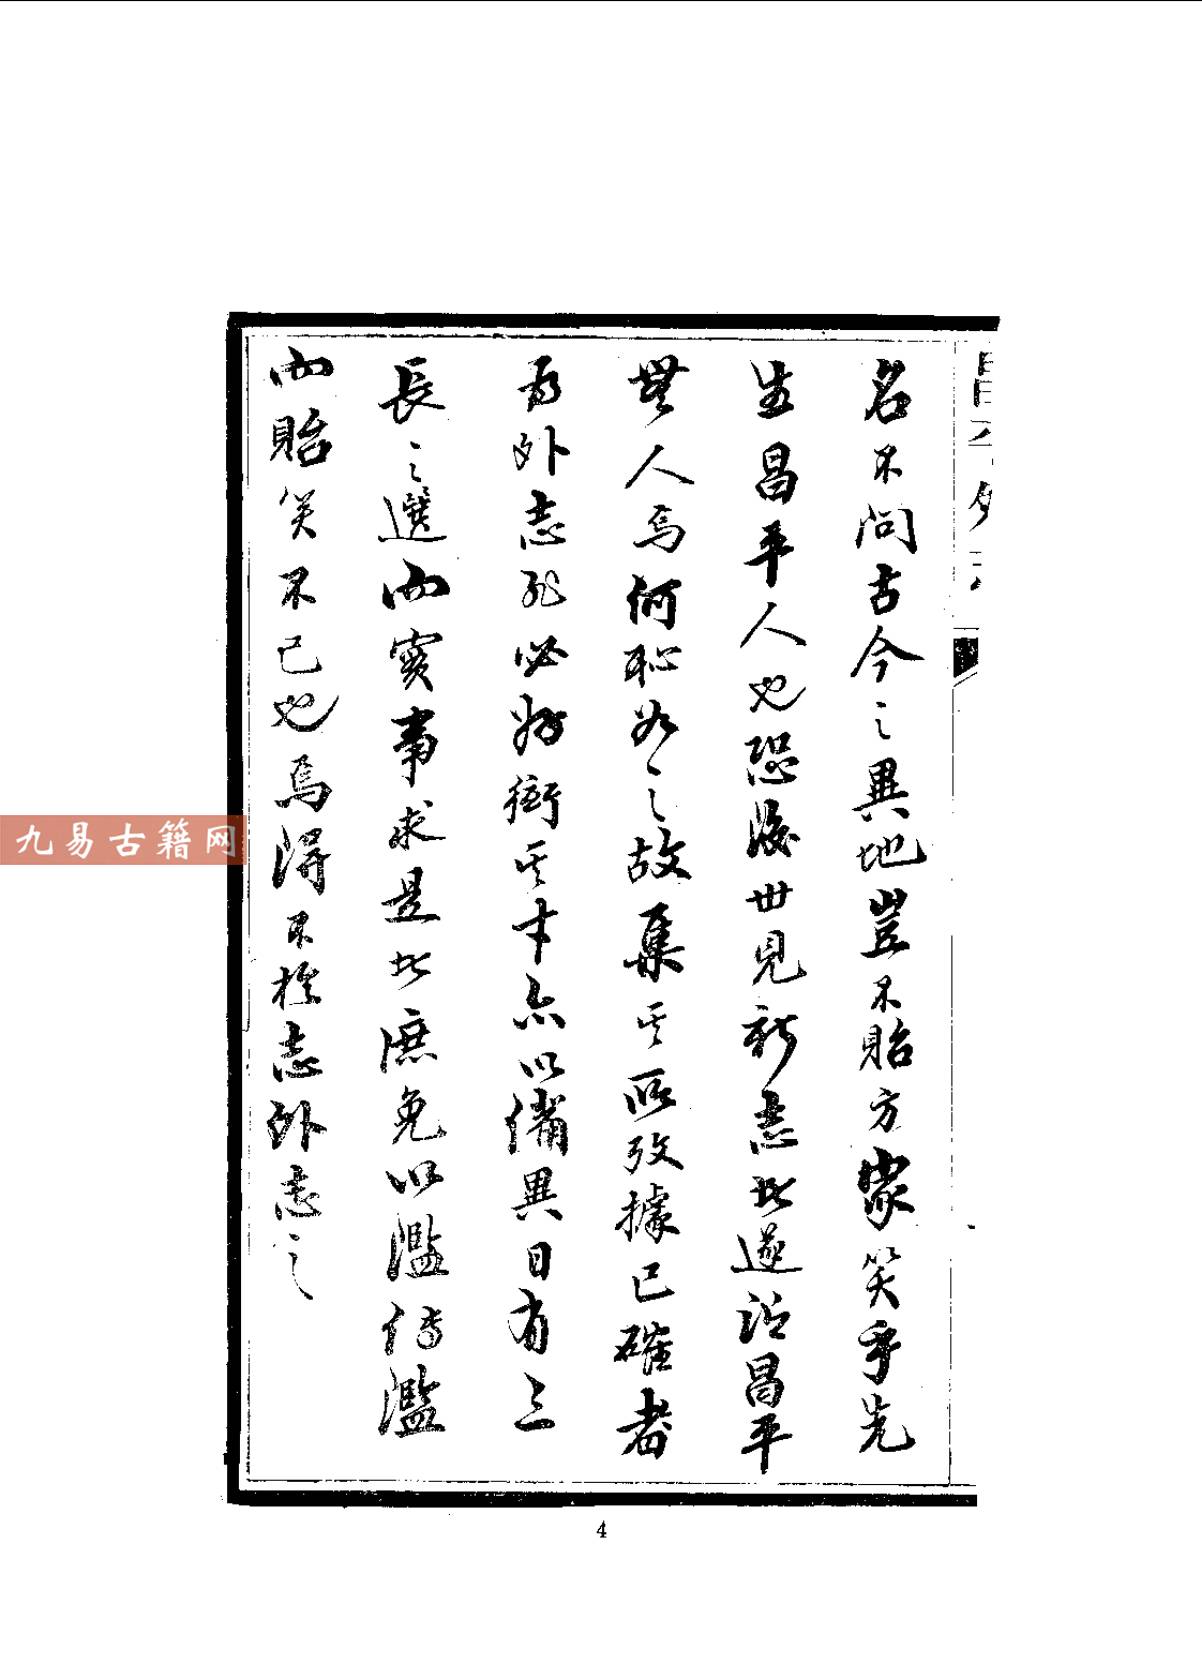 名不問古今之異地豈不貽方家笑乎先
生昌平人也恐後世見新志此遂詔昌平
無人焉何恥如之故集其所攷據已確者
為外志非必好衒其才亦以備異日有三
長之選而實事求是此庶免以濫傳濫
而貽笑不已也焉得不於志外志之
4
九易古籍网